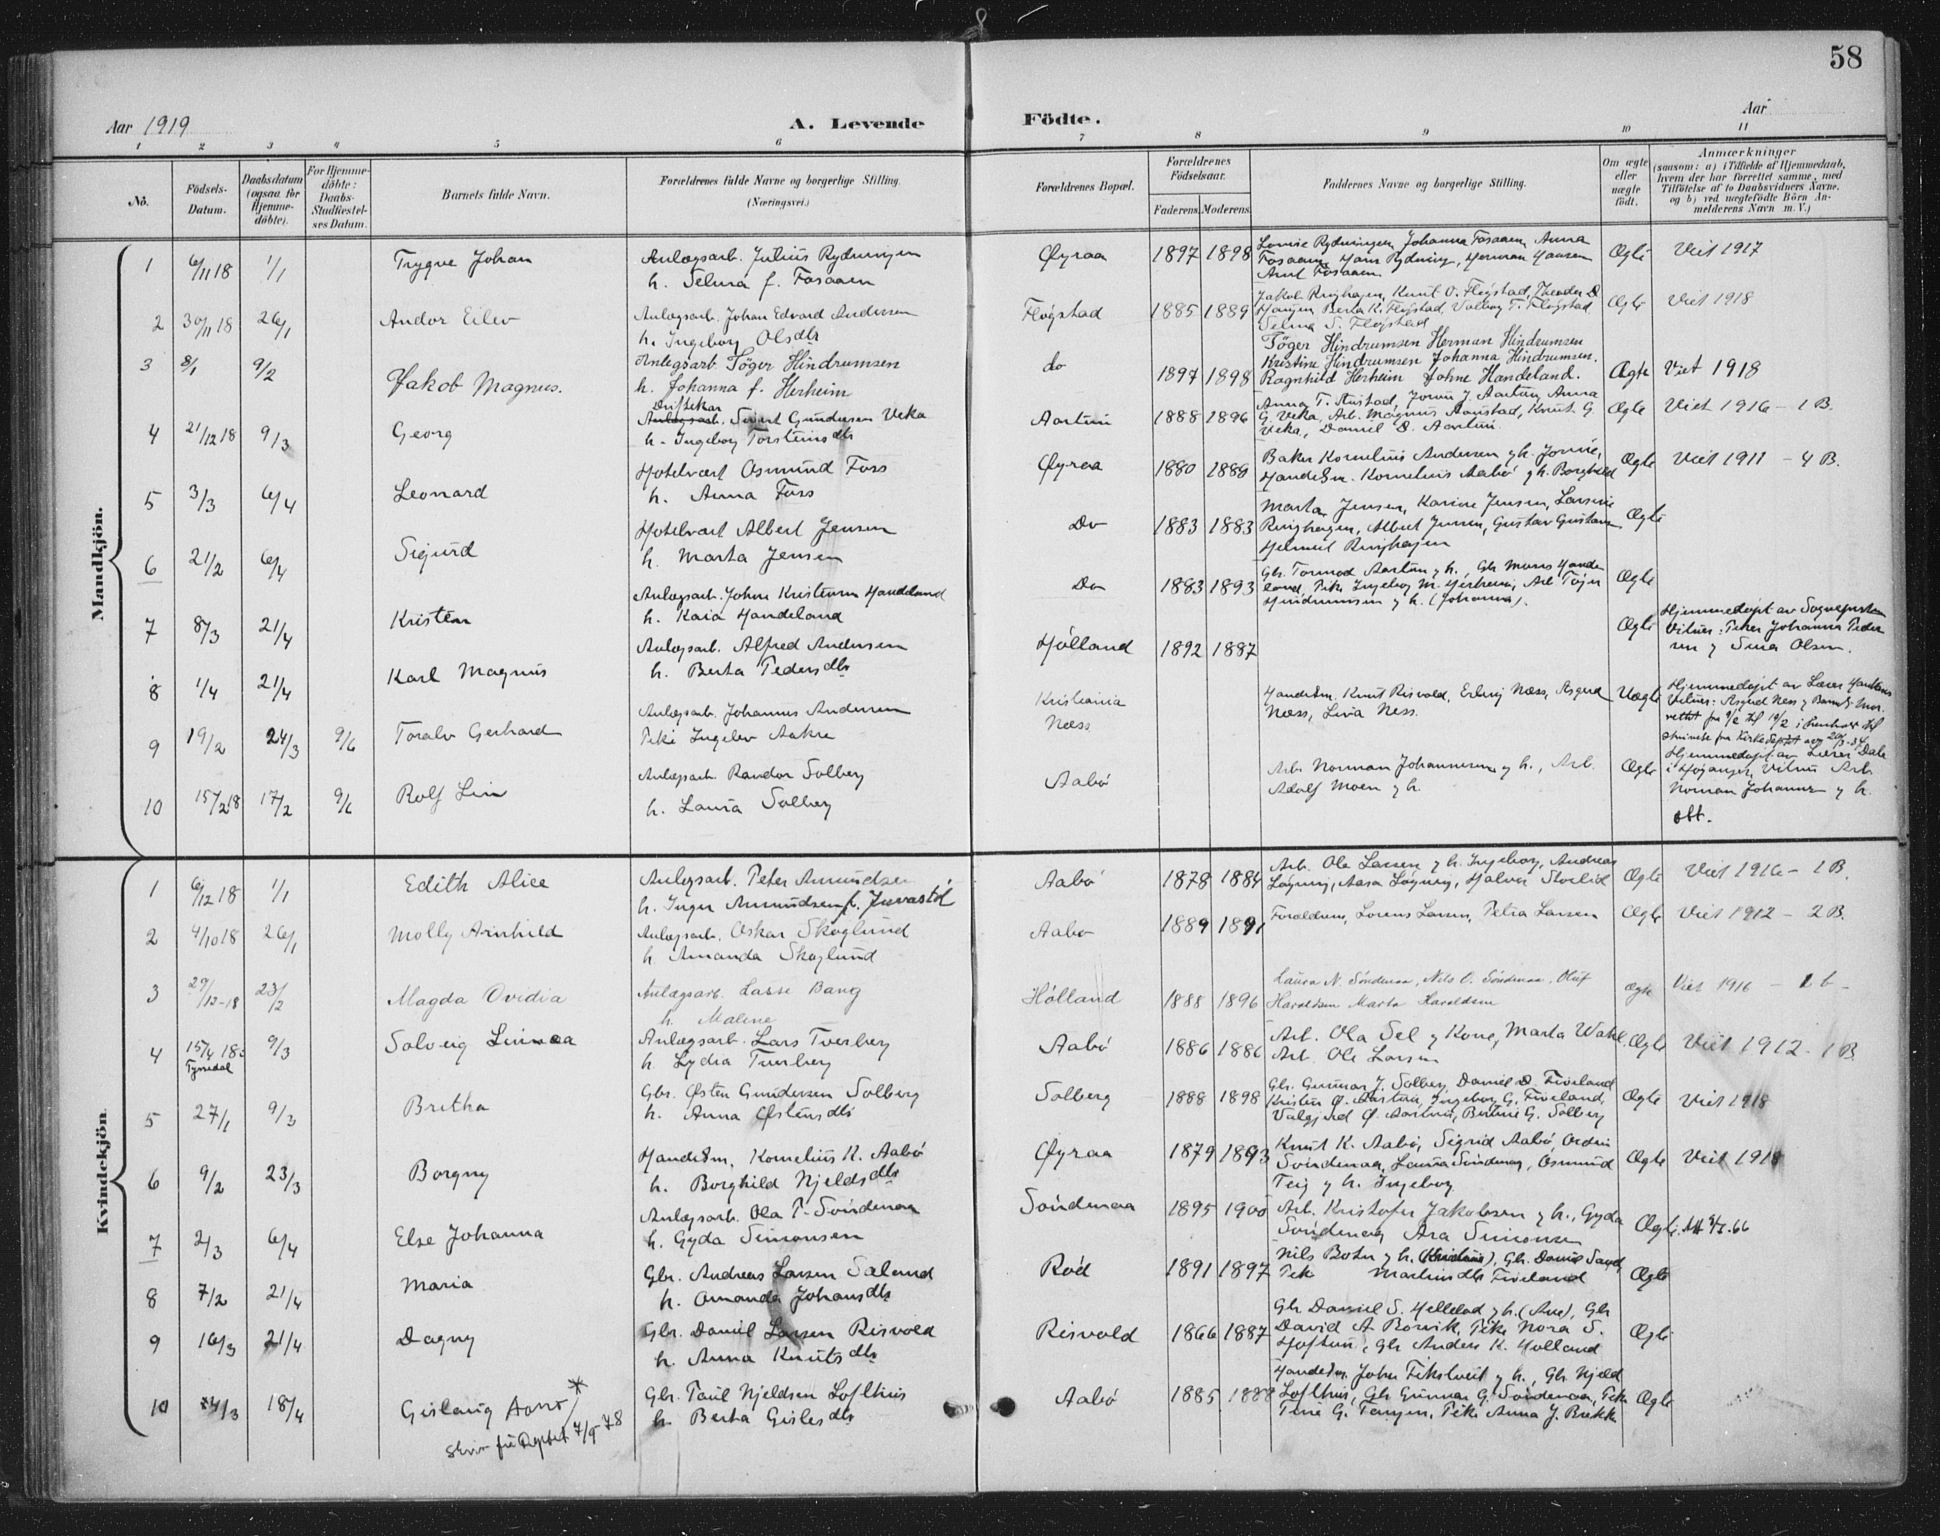 58
Aar 1919
A. Levende Födte.
Aar
1 2 3 4 5 6 7 8 9 10 11
No.
Födsels-Datum.
Daabsdatum (ogsaa for Hjemme-döbte).
For Hjemme-döbte: Daabs-Stadfæstel-ses Datum.
Barnets fulde Navn.
Forældrenes fulde Navne og borgerlige Stilling. (Næringsvei.)
Forældrenes Bopæl.
Forældrenes Födselsaar.
Faderens. Moderens.
Faddernes Navne og borgerlige Stilling.
Om ægte eller uægte födt.
Anmærkninger
(saasom: a) i Tilfælde af Hjemmedaab, hvem der har forrettet samme, med Tilföielse af to Daabsvidners Navne, og b) ved uægtefödte Börn An-melderens Navn m. V.)
Mandkjön.
1 6/11 18 1/1 Trygve Johan
Anlægsarb. Julius Rydningen
h. Selma f. Fosaaen
Øyraa 1897 1898
Lovise Rydningen, Johanna Fosaaen, Anna
Fosaaen, Hans Rydning, Herman Hansen
Arnt Fosaaen
Ægte Viet 1917
2 30/11 18 26/1 Andor Eilev
Anlægsarb. Johan Edvard Andersen
h. Ingeborg Olsdtr
Fløgstad 1885 1889
Jakob Ringhagen, Knut O. Fløgstad, Theodor D
Hansen, Berta K. Fløgstad, Valborg T. Fløgstad
Selma S. Fløgstad
Ægte Viet 1918
3 8/1 9/2 Jakob Magnus.
Anlegsarb Töger Hindrumsen
h. Johanna f. Herheim
do 1897 1898
Töger Hindrumsen Herman Hindrumsen
Kristine Hindrumsen Johanna Hindrumsen.
Ragnhild Herheim Johne Handeland.
Ægte Viet 1918
4 21/12 18 9/3 Georg
Driftskar
Anlægsarb. Sivert Gundersen Veka
h. Ingeborg Torsteinsdtr
Aartun 1888 1896
G. Veka, Arb. Magnus Aanstad, Knut G
Veka, Daniel D. Aartun.
Ægte Viet 1916 - 1 B.
5 3/3 6/4 Leonard
Hotelvært Osmund Foss
h. Anna Foss
Øyraa 1880 1889
Baker Kornelius Andersen y h. Jonine,
Handelsm. Kornelius Aabø y h. Borghild
Ægte Viet 1911 - 4 B.
6 21/2 6/4 Sigurd
Hotelvært Albert Jensen
h. Marta Jensen
Do 1883 1883
Marta Jensen, Karine Jensen, Larsine
Ringhagen, Albert Jensen, Gustav Gustavsen
Helmert Ringhagen
Ægte
7 8/3 21/4 Kristen
Anlægsarb. Johne Kristensen Handeland
h. Kaia Handeland
Do 1883 1893
Gbr. Tormod Aartun y h., Gbr Mons Hande
land, Pike Ingeborg M. Herheim, Arb Töger
Hindrumsen y h. (Johanna).
Ægte
8 1/4 21/4 Karl Magnus
Anlægsarb. Alfred Andersen
h. Berta Pedersdtr
Hølland 1892 1887
Ægte
Hjemmedøpt av Sognepresten
Vitner: Piker Johanna Peder
sen y Sina Olsen.
9 19/2 24/3 9/6 Toralv Gerhard
Anlægsarb. Johannes Andersen
Pike Ingelev Aakre
Kristiania
Næss
Handelsm. Knut Risvold, Erling Næss, Asgerd
Næss, Livia Ness.
Uægte
Hjemmedøpt av Lærer
Vitner: Asgerd Ness y
10 15/2 18 17/2 9/6 Rolf Lin
Anlægsarb. Randor Solberg
h. Laura Solberg
Aabø
Arb. Norman Johannesen y h., Arb.
Adolf Moen y h.
Ægte
Hjemmedøpt av Lærer Dale
i Høyanger, Vitner Arb.
Norman Johannes y h.
Att.
Kvindekjön
1 6/12 18 1/1 Edith Alice
Anlægsarb. Peter Amundsen
h. Inger Amundsen f. Juvastøl
Aabø 1878 1884
Arb. Ole Larsen y h. Ingeborg, Andreas
Løyning, Aasa Løyning, Halvor Storlid
Ægte Viet 1916 - 1 B.
2 4/10 18 26/1 Molly Arnhild
Anlægsarb. Oskar Skoglund
h. Amanda Skoglund
Aabø 1889 1891
Forældrene, Lorens Larsen, Petra Larsen
Ægte Viet 1912 - 2 B.
3 29/12-18 23/2 Magda Ovidia
Anlægsarb. Lasse Bang
h. Maline
Hölland 1888 1896
Laura N. Söndenaa, Nils O. Söndenaa, Oluf
Haraldsen Marta Haraldsen
ægte Viet 1916 - 1 b -
4 15/4 18 Tyssedal 9/3 Solveig Linnea
Anlægsarb. Lars Tverberg
h. Lydia Tverberg
Aabø 1886 1886
Arb. Ola Sel y Kone, Marta Wahl.
Arb. Ole Larsen
Ægte Viet 1912. 1 B
5 27/1 9/3 Bretha
Gbr. Østen Gundersen Solberg
h. Anna Østensdtr
Solberg 1888 1898
Gbr. Gunnar J. Solberg, Daniel D. Fiveland
Kristen Ø. Aartun, Ingeborg G. Fiveland,
Valgjerd Ø. Aartun, Bertine G. Solberg
Ægte Viet 1918
6 9/2 23/3 Borgny
Handelsm. Kornelius K. Aabø
h. Borghild Njeldsdtr
Øyraa 1879 1893
Knut K. Aabø, Sigrid Aabø, Ordin
Söndenaa, Laura Söndenaa, Osmund
Teig y h. Ingeborg
Ægte Viet 1918
7 2/3 6/4 Else Johanna
Anlægsarb. Ola T. Söndenaa
h. Gyda Simonsen
Söndenaa 1895 1900
Arb. Kristofer Jakobsen y h., Gyda
Söndenaa, Ara Simonsen
Ægte
8 7/2 21/4 Maria
Gbr. Andreas Larsen Saland
h. Amanda Johansdtr
Rød 1891 1897
Nils Botn y h. (Kristine), Gbr. Daniel Sand,
Pike Martinsdtr Fiveland
Ægte
9 16/3 21/4 Dagny
Gbr. Daniel Larsen Risvold
h. Anna Knutsdtr
Risvold 1866 1887
Gbr Daniel S. Hellelad y h. (Ane), Gbr
David A Rørvik, Pike Nora S.
Hoftun, Gbr Anders K. Hølland
Ægte
10 24/3 18/4 Gislaug Aano *
skriv fra Dept 7/9-78
Gbr. Paul Njeldsen Lofthus
h. Berta Gislesdtr
Aabø 1885 1888
Handelsm John Fikstveit y h., Gbr Njeld
Lofthus, Gbr Gunnar G. Söndenaa, Pike
Tine G. Tangen, Pike Anna J. Brekke
Ægte